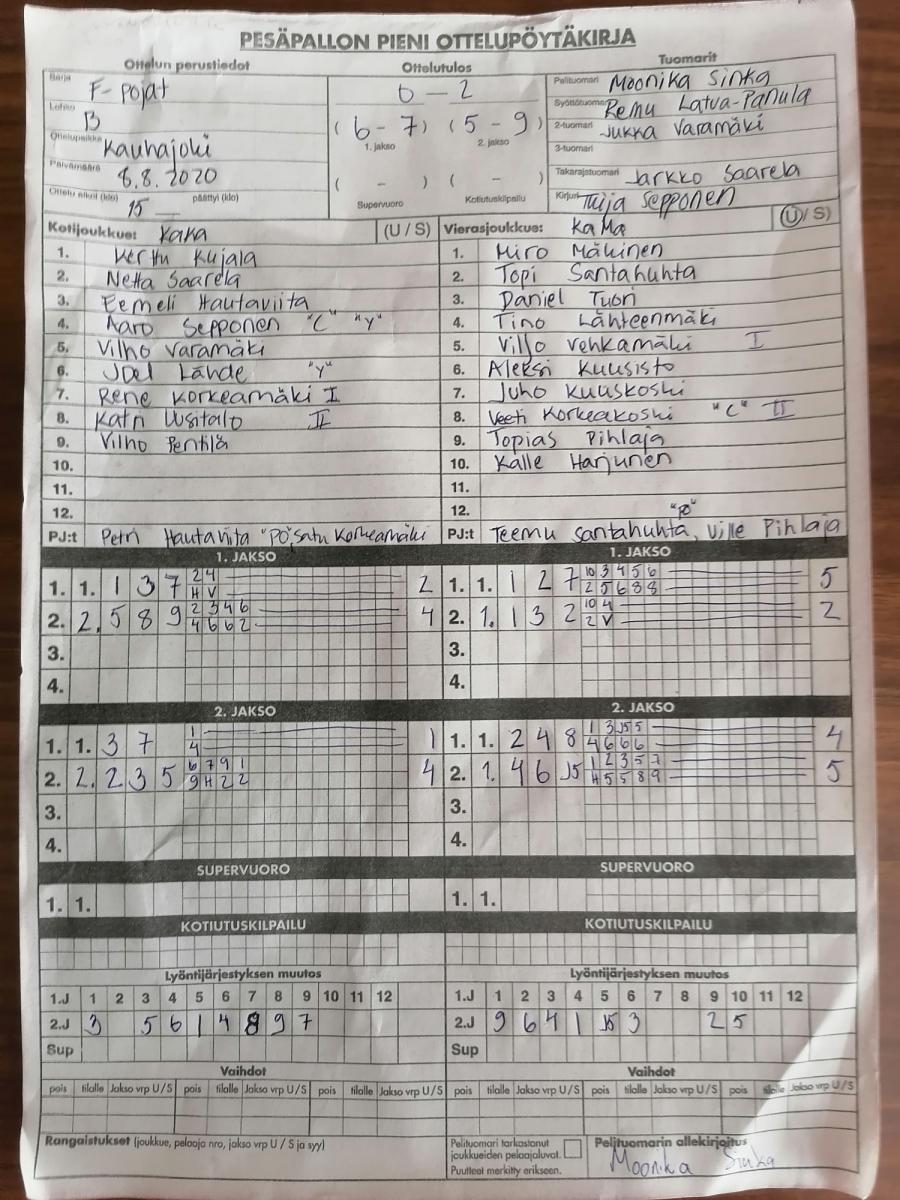 PESÄPALLON PIENI OTTELUPÖYTÄKIRJA
Ottelun perustiedot
Ottelutulos
Tuomarit
Sarja F-pojat
0 - 2
Pelituomari Moonika Sinka
Lohko B
(6-7) (5-9)
1. jakso 2. jakso
Syöttötuomari Remu Latva-Panula
Ottelupaikka Kauhajoki
2-tuomari Jukka Varamäki
3-tuomari
Päivämäärä 8.8.2020
( - ) ( - )
Supervuoro Kotiutuskilpailu
Takarajatuomari Jarkko Saarela
Ottelu alkoi (klo) 15 päättyi (klo)
Kirjuri Tuija Sepponen
Kotijoukkue: KaKa (U / S)
Vierasjoukkue: KaMa (U / S)
1. Kerttu Kujala
1. Miro Mäkinen
2. Netta Saarela
2. Topi Santahuhta
3. Eemeli Hautaviita
3. Daniel Tuori
4. Aaro Sepponen "C" "Y"
4. Tino Lähteenmäki
5. Vilho Varamäki
5. Viljo Vehkamäki I
6. Joel Lähde "Y"
6. Aleksi Kuusisto
7. Rene Korkeamäki I
7. Juho Kuuskoski
8. Katri Uusitalo II
8. Veeti Korkeakoski "C" II
9. Vilho Penttilä
9. Topias Pihlaja
10.
10. Kalle Harjunen
11.
11.
12.
12. "PO"
PJ:t Petri Hautaviita "PO", Satu Korkeamäki
PJ:t Teemu Santahuhta, Ville Pihlaja
1. JAKSO
1. JAKSO
1. 1. 1 3 7 2 4 2
H V
1. 1. 1 2 7 10 3 4 5 6 5
2 5 6 8 8
2. 2. 5 8 9 2 3 4 6 4
4 6 6 2
2. 1. 1 3 2 10 4 2
2 V
3.
3.
4.
4.
2. JAKSO
2. JAKSO
1. 1. 3 7 1 1
4
1. 1. 2 4 8 1 3 J5 5 4
4 6 6 6
2. 2. 2 3 5 6 7 9 1 4
9 H 2 2
2. 1. 4 6 J5 1 2 3 5 7 5
H 5 5 8 9
3.
3.
4.
4.
SUPERVUORO
SUPERVUORO
1. 1.
1. 1.
KOTIUTUSKILPAILU
KOTIUTUSKILPAILU
Lyöntijärjestyksen muutos
Lyöntijärjestyksen muutos
1.J 1 2 3 4 5 6 7 8 9 10 11 12
1.J 1 2 3 4 5 6 7 8 9 10 11 12
2.J 3 5 6 1 4 8 9 7
2.J 9 6 4 1 J5 3 2 5
Sup
Sup
Vaihdot
Vaihdot
pois tilalle Jakso vrp U/S pois tilalle Jakso vrp U/S pois tilalle Jakso vrp U/S
pois tilalle Jakso vrp U/S pois tilalle Jakso vrp U/S pois tilalle Jakso vrp U/S
Rangaistukset (joukkue, pelaaja nro, jakso vrp U / S ja syy)
Pelituomari tarkastanut
joukkueiden pelaajaluvat.
Puutteet merkitty erikseen.
Pelituomarin allekirjoitus
Moonika Sinka